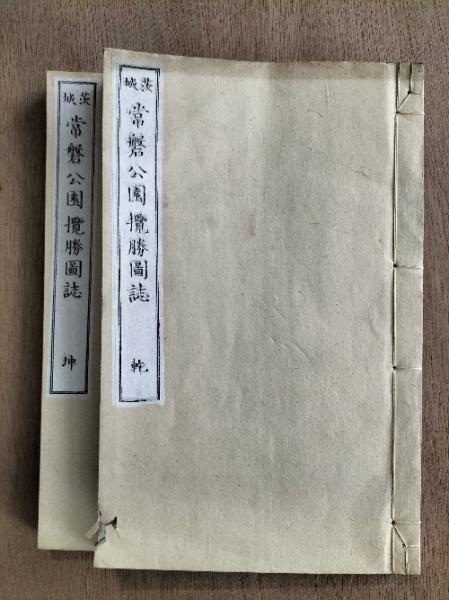 茨城
常磐公園攬勝圖誌
乾
茨城
常磐公園攬勝圖誌
坤